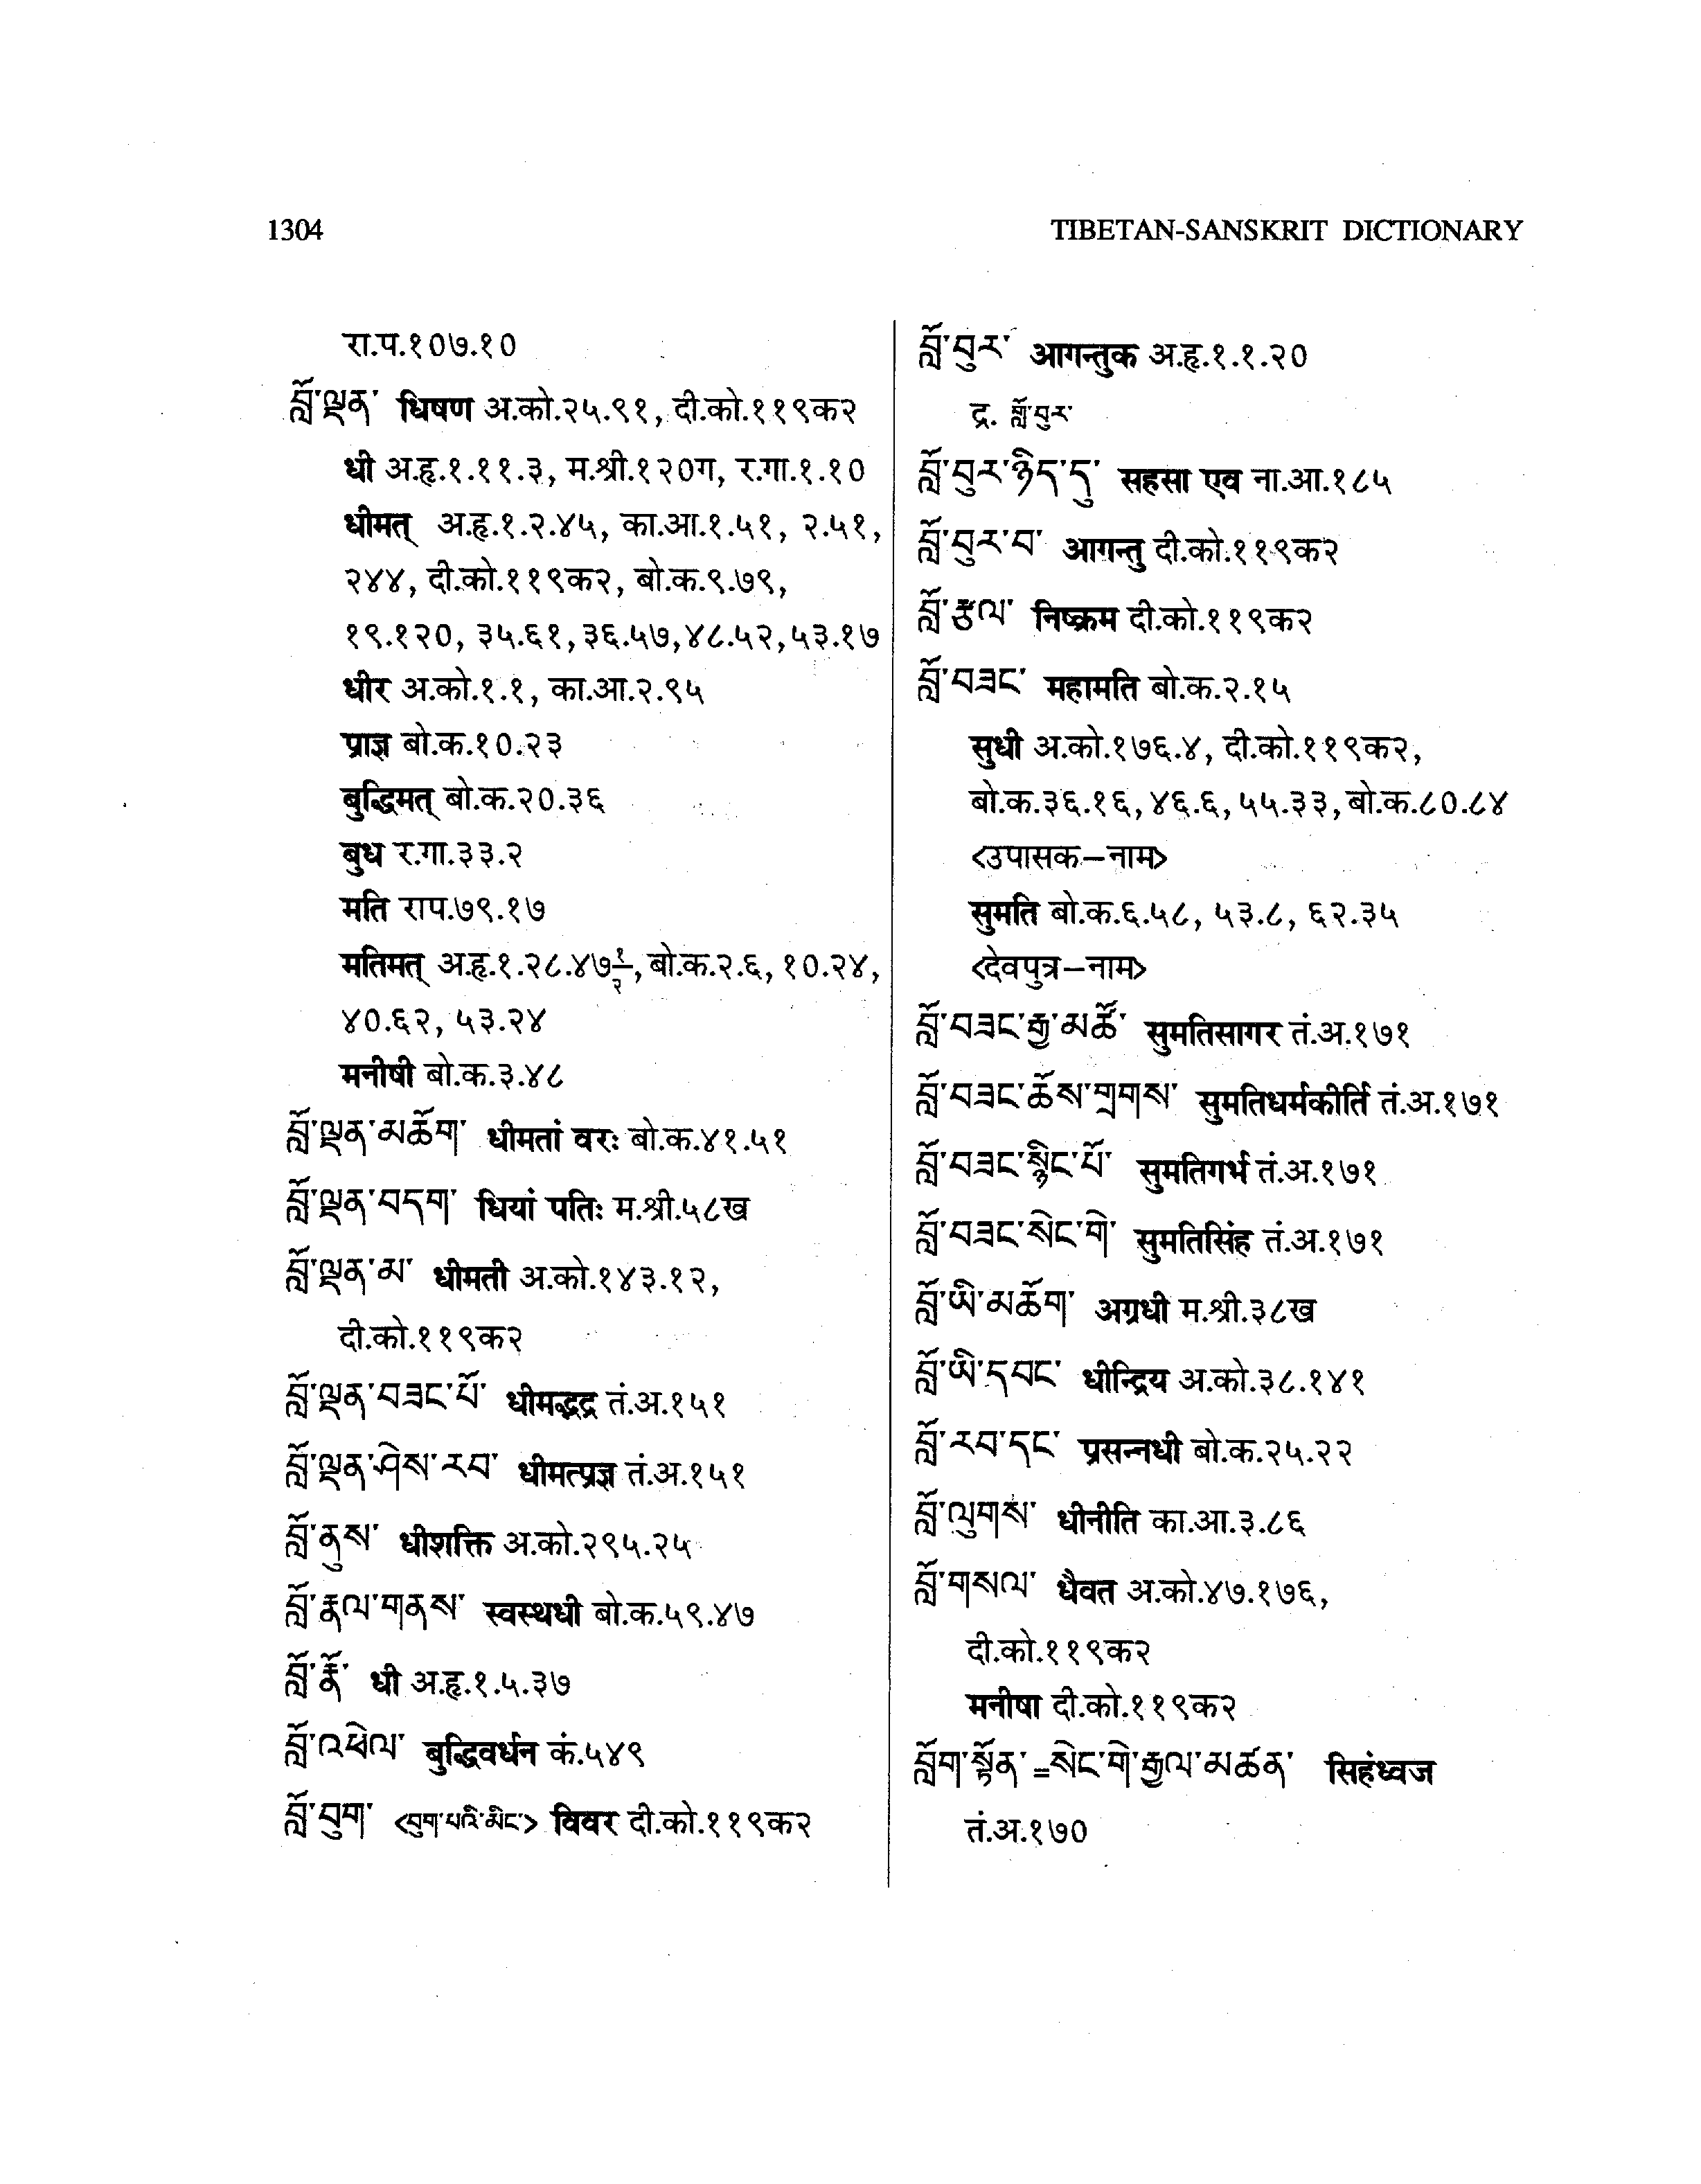 1304
TIBETAN-SANSKRIT DICTIONARY
रा.प.१०७.१०
བློ་ལྡན་ धिषण अ.को.२५.९१, दी.को.११९क२
धी अ.हृ.१.११.३, म.श्री.१२०ग, र.गा.१.१०
धीमत् अ.हृ.१.२.४५, का.आ.१.५१, २.५१,
२४४, दी.को.११९क२, बो.क.९.७९,
१९.१२०, ३५.६१, ३६.५७, ४८.५२, ५३.१७
धीर अ.को.१.१, का.आ.२.९५
प्राज्ञ बो.क.१०.२३
बुद्धिमत् बो.क.२०.३६
बुध र.गा.३३.२
मति राप.७९.१७
मतिमत् अ.हृ.१.२८.४७१/२, बो.क.२.६, १०.२४,
४०.६२, ५३.२४
मनीषी बो.क.३.४८
བློ་ལྡན་མཆོག་ धीमतां वरः बो.क.४१.५१
བློ་ལྡན་བདག་ धियां पतिः म.श्री.५८ख
བློ་ལྡན་མ་ धीमती अ.को.१४३.१२,
दी.को.११९क२
བློ་ལྡན་བཟང་པོ་ धीमद्भद्र तं.अ.१५१
བློ་ལྡན་ཤེས་རབ་ धीमत्प्रज्ञ तं.अ.१५१
བློ་ནུས་ धीशक्ति अ.को.२९५.२५
བློ་རྣལ་གནས་ स्वस्थधी बो.क.५९.४७
བློ་རྣོ་ धी अ.हृ.१.५.३७
བློ་འཕེལ་ बुद्धिवर्धन कं.५४९
བློ་བུག་ <བུག་པའི་མིང་> विवर दी.को.११९क२
བློ་བུར་ आगन्तुक अ.हृ.१.१.२०
द्र. གློ་བུར་
བློ་བུར་ཉིད་དུ་ सहसा एव ना.आ.१८५
བློ་བུར་བ་ आगन्तु दी.को.११९क२
བློ་རྩལ་ निष्क्रम दी.को.११९क२
བློ་བཟང་ महामति बो.क.२.१५
सुधी अ.को.१७६.४, दी.को.११९क२,
बो.क.३६.१६, ४६.६, ५५.३३, बो.क.८०.८४
<उपासक–नाम>
सुमति बो.क.६.५८, ५३.८, ६२.३५
<देवपुत्र–नाम>
བློ་བཟང་རྒྱ་མཚོ་ सुमतिसागर तं.अ.१७१
བློ་བཟང་ཆོས་གྲགས་ सुमतिधर्मकीर्ति तं.अ.१७१
བློ་བཟང་སྙིང་པོ་ सुमतिगर्भ तं.अ.१७१
བློ་བཟང་སེང་གེ་ सुमतिसिंह तं.अ.१७१
བློ་ཡི་མཆོག་ अग्रधी म.श्री.३८ख
བློ་ཡི་དབང་ धीन्द्रिय अ.को.३८.१४१
བློ་རབ་དང་ प्रसन्नधी बो.क.२५.२२
བློ་ལུགས་ धीनीति का.आ.३.८६
བློ་གསལ་ धैवत अ.को.४७.१७६,
दी.को.११९क२
मनीषा दी.को.११९क२
བློག་སྟོན་ =སེང་གེ་རྒྱལ་མཚན་ सिहंध्वज
तं.अ.१७०